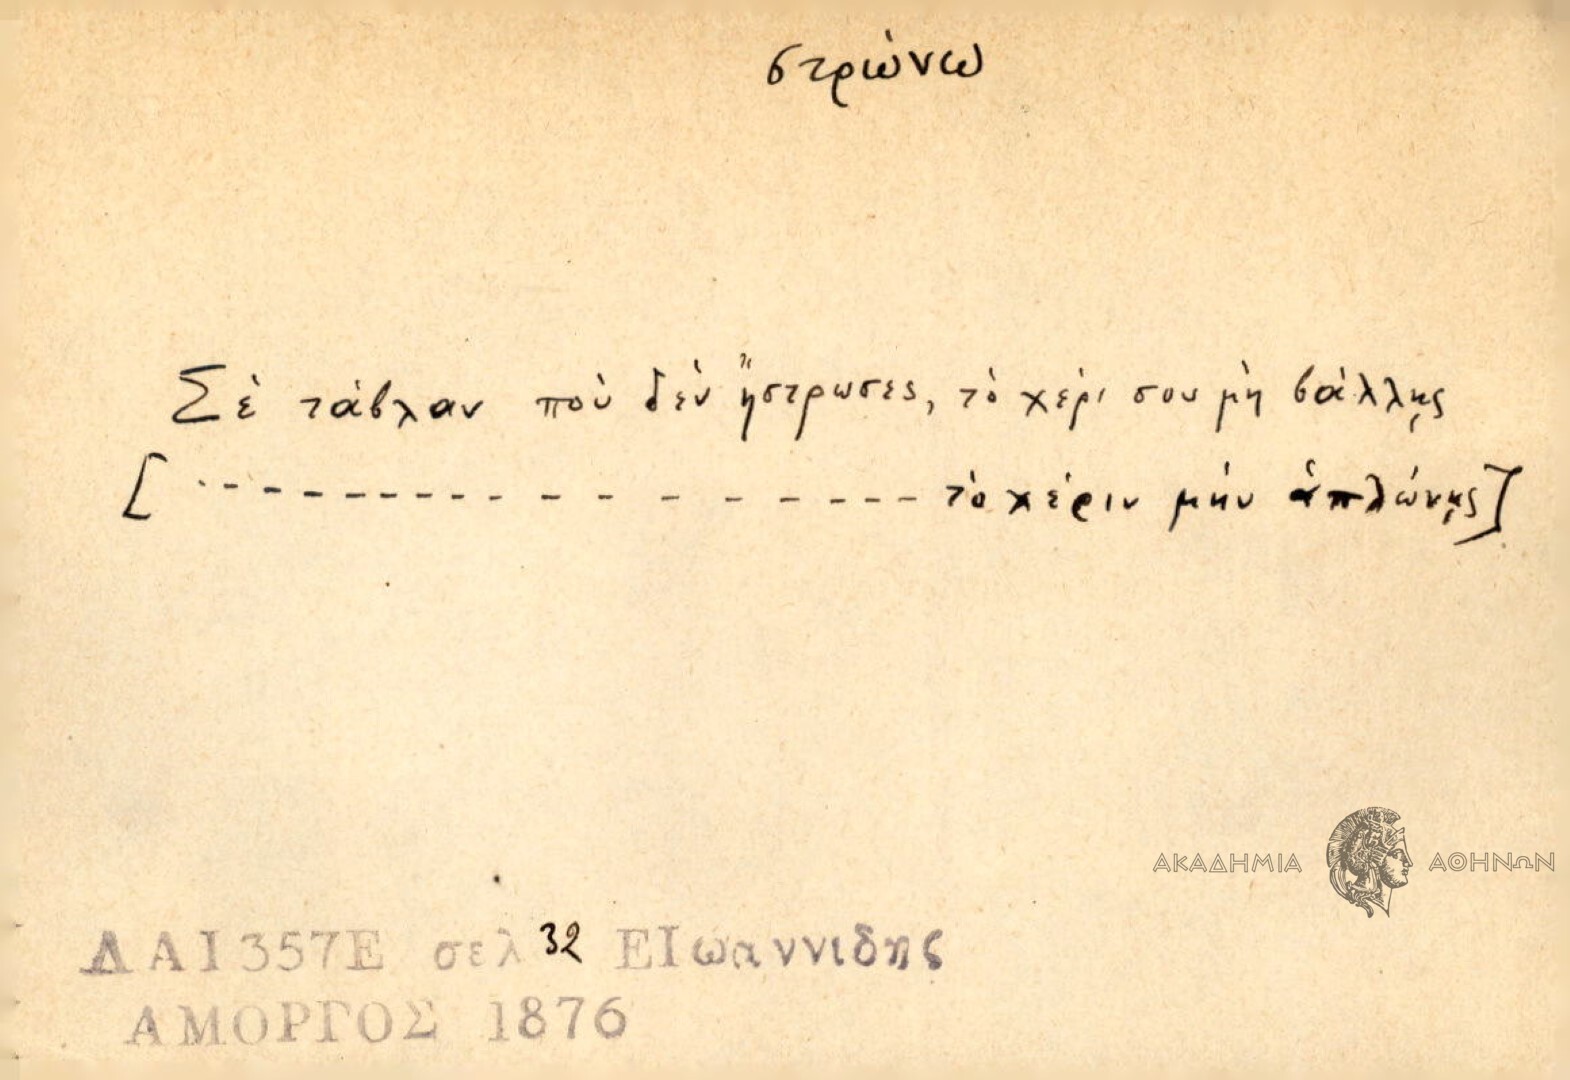 στρώνω
Σὲ τάβλαν ποὺ δὲν ἤστρωσες, τὸ χέρι σου μὴ βάλλῃς
[. - - - - - - - - - - - - - - - - τὸ χέριν μὴν ἁπλώνῃς]
ΑΚΑΔΗΜΙΑ ΑΘΗΝΩΝ
ΛΑΙ357Ε σελ 32 ΕΙωαννιδης
ΑΜΟΡΓΟΣ 1876